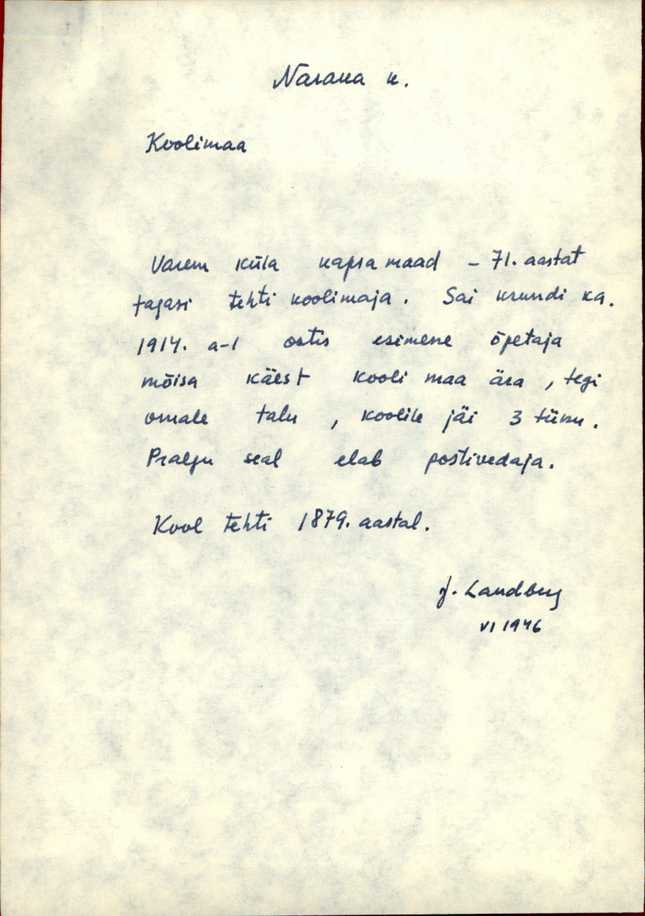 Narana k.
Koolimaa
Varem küla kapsamaad - 71. aastat
tagasi tehti koolimaja. Sai krundi ka.
1914. a-l ostis esimene õpetaja
mõisa käest kooli maa ära, tegi
omale talu, koolile jäi 3 tiinu.
Praegu seal elab postivedaja.
Kool tehti 1879. aastal.
J. Landberg
VI 1946